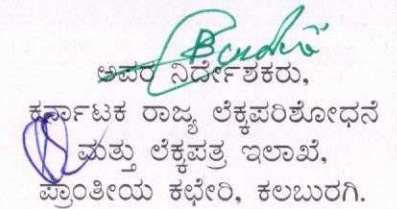 ಅಪರ ನಿರ್ದೇಶಕರು,
ಕರ್ನಾಟಕ ರಾಜ್ಯ ಲೆಕ್ಕಪರಿಶೋಧನೆ
ಮತ್ತು ಲೆಕ್ಕಪತ್ರ ಇಲಾಖೆ,
ಪ್ರಾಂತೀಯ ಕಛೇರಿ, ಕಲಬುರಗಿ.